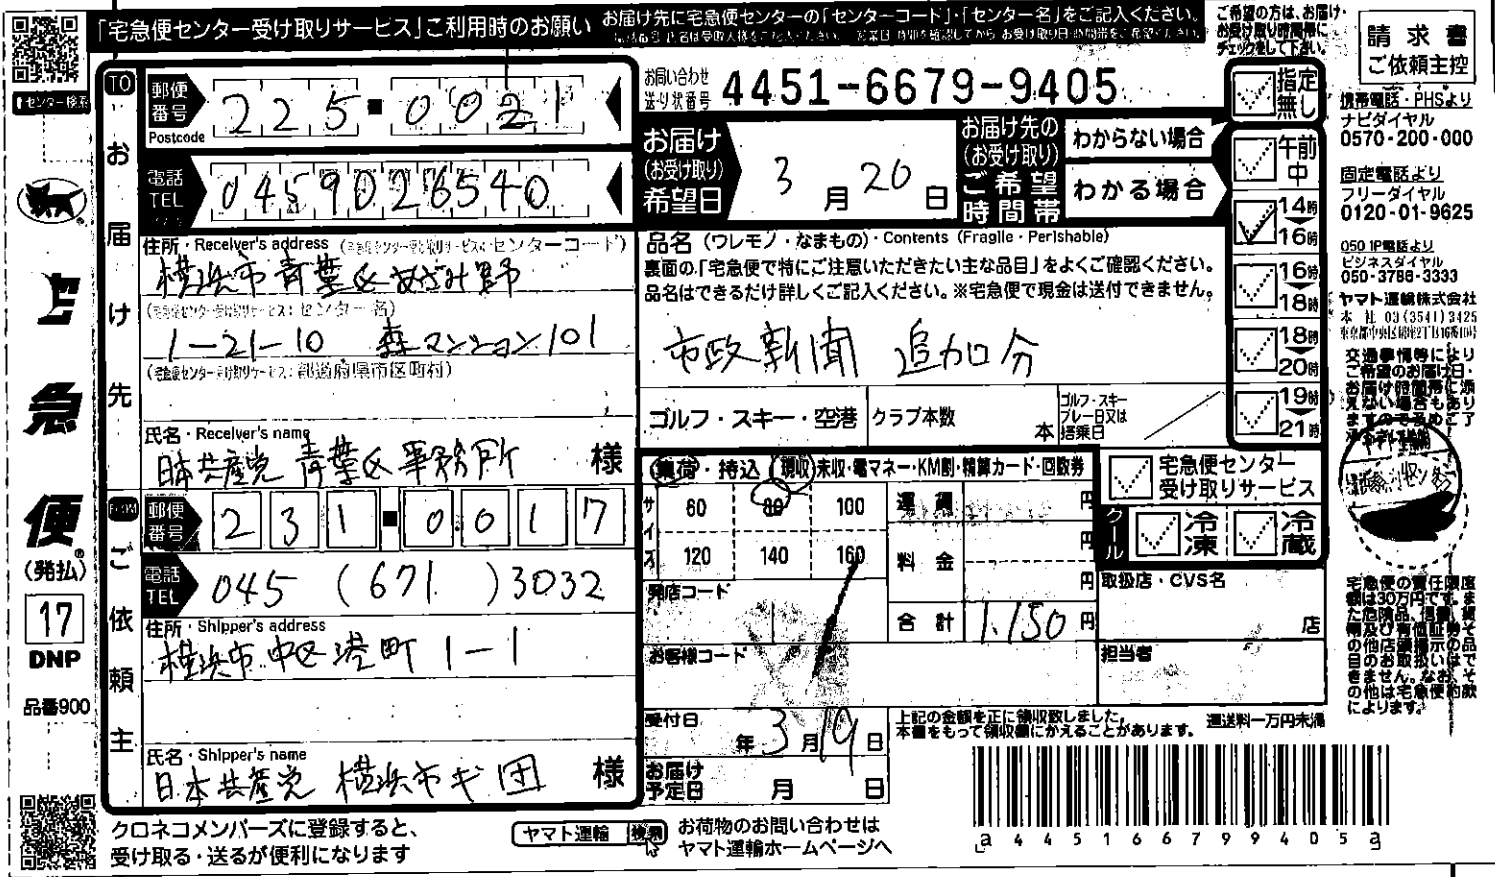 「宅急便センター受け取りサービス」ご利用時のお願い
お届け先に宅急便センターの「センターコード」・「センター名」をご記入ください。
ご希望の方は、お届け・
お受け取り時間帯に
チェックをして下さい。
請求書
ご依頼主控
センター検索
TO
お届け先
郵便番号
Postcode
225-0021
電話
TEL
0459026540
住所・Receiver's address (宅急便センター受け取りサービス:センターコード)
横浜市青葉区あざみ野
(宅急便センター受け取りサービス:センター名)
1-21-10 森マンション101
(宅急便センター受け取りサービス:都道府県市区町村)
氏名・Receiver's name
日本共産党 青葉区事務所 様
FROM
ご依頼主
郵便番号
231-0017
電話
TEL
045 (671) 3032
住所・Shipper's address
横浜市中区港町1-1
氏名・Shipper's name
日本共産党 横浜市ギ団 様
お問い合わせ
送り状番号
4451-6679-9405
お届け
(お受け取り)
希望日
3月20日
お届け先の
(お受け取り)
ご希望
時間帯
わからない場合
わかる場合
指定無し
午前中
14時
16時
16時
18時
18時
20時
19時
21時
品名 (ワレモノ・なまもの)・Contents (Fragile・Perishable)
裏面の「宅急便で特にご注意いただきたい主な品目」をよくご確認ください。
品名はできるだけ詳しくご記入ください。※宅急便で現金は送付できません。
市政新聞 追加分
ゴルフ・スキー・空港
クラブ本数
本
ゴルフ・スキー
プレー日又は
搭乗日
集荷・持込
現収・未収・電マネー・KM割・精算カード・回数券
サイズ
60 80 100
120 140 160
運賃 円
料金 円
円
合計 1,150円
発店コード
お客様コード
宅急便センター
受け取りサービス
クール
冷凍
冷蔵
取扱店・CVS名
店
担当者
受付日
年3月19日
お届け
予定日
月 日
上記の金額を正に領収致しました。
本書をもって領収書にかえることがあります。
運送料一万円未満
a445166799405a
宅急便
(発払)
17
DNP
品番900
携帯電話・PHSより
ナビダイヤル
0570-200-000
固定電話より
フリーダイヤル
0120-01-9625
050 IP電話より
ビジネスダイヤル
050-3786-3333
ヤマト運輸株式会社
本社 03(3541)3425
交通事情等により
ご希望のお届け日・
お届け時間帯に添
えない場合もあり
ますので予めご了
宅急便の責任限度
額は30万円です。ま
た危険品、信書、貨
幣及び有価証券そ
の他店頭掲示の品
目のお取扱いはで
きません。なお、そ
の他は宅急便約款
によります。
クロネコメンバーズに登録すると、
受け取る・送るが便利になります
ヤマト運輸 検索
お荷物のお問い合わせは
ヤマト運輸ホームページへ